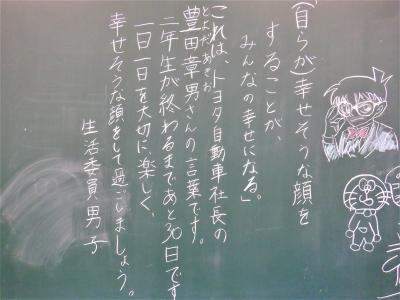 (自らが)幸せそうな顔を
することが、
みんなの幸せになる。」
これは、トヨタ自動車社長の
とよだあきお
豊田章男さんの言葉です。
二年生が終わるまであと30日です
一日一日を大切に、楽しく、
幸せそうな顔をして過ごしましょう。
生活委員男子